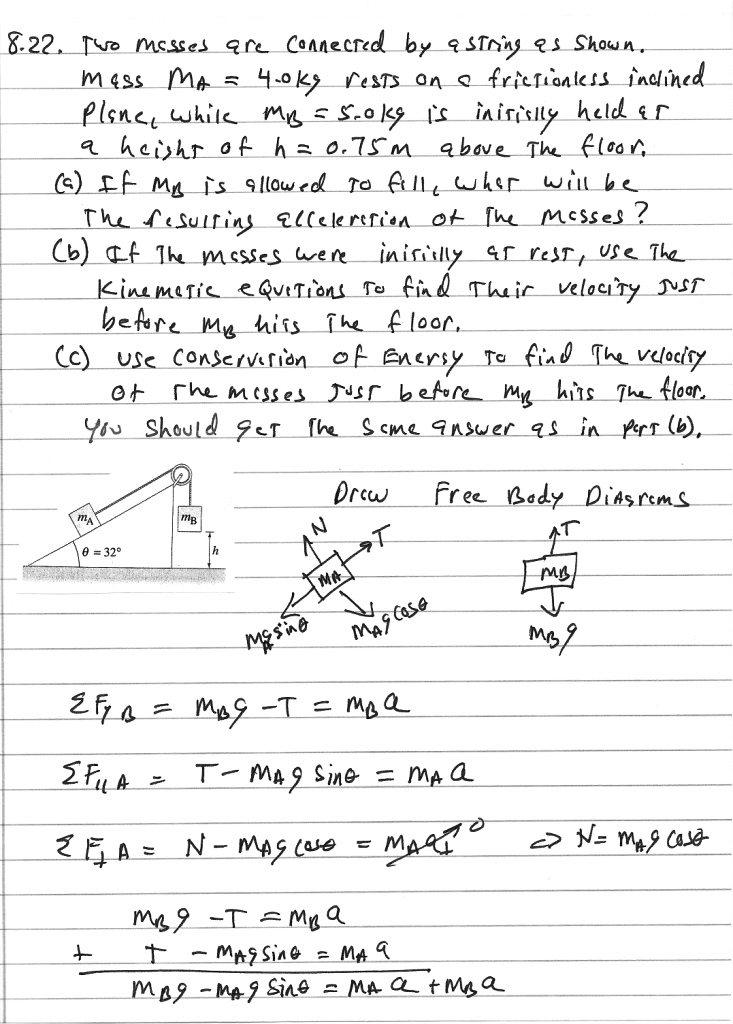 8.22. Two masses are connected by a string as shown.
Mass MA = 4.0kg rests on a frictionless inclined
plane, while MB = 5.0kg is initially held at
a height of h = 0.75m above the floor.
(a) If MB is allowed to fall, what will be
the resulting acceleration of the masses?
(b) If the masses were initially at rest, use the
kinematic equations to find their velocity just
before MB hits the floor.
(c) use conservation of Energy to find the velocity
of the masses just before MB hits the floor.
You should get the same answer as in part (b).
Draw Free Body Diagrams
mA
mB
θ = 32°
h
N
T
MA
MAg sinθ
MAg cosθ
T
MB
MBg
ΣFyB = MBg - T = MBa
ΣF∥A = T - MAg sinθ = MAa
ΣF⊥A = N - MAg cosθ = MAa⊥ 0 ⇒ N = MAg cosθ
MBg - T = MBa
+ T - MAg sinθ = MAa
MBg - MAg sinθ = MAa + MBa